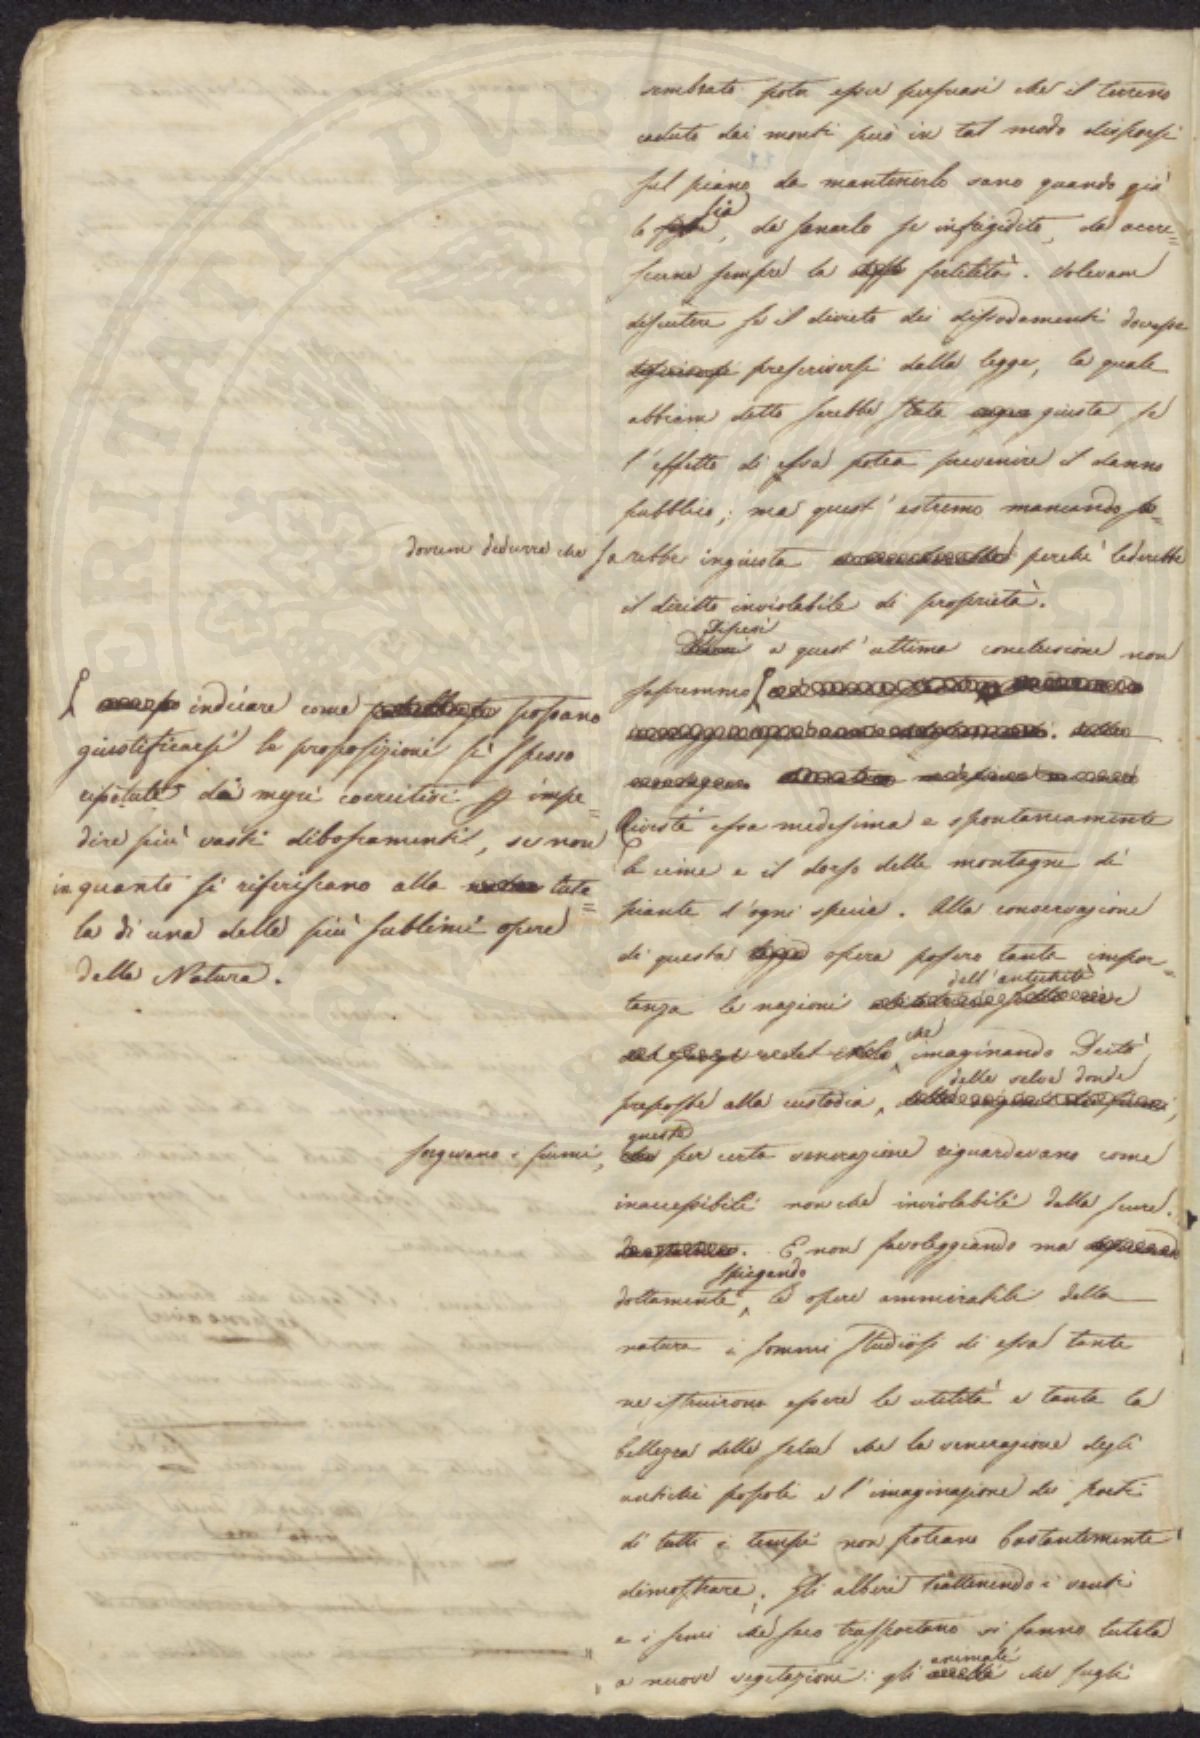 sembrato poter esser persuasi che il terreno
caduto dai monti può in tal modo disporsi
sul piano da mantenerlo sano quando già
lo sia, da sanarlo se infrigidito, da accre=
scerne sempre la fertilità. Volevam
discutere se il divieto dei dissodamenti dovesse
prescriversi dalla legge, la quale
abbiam detto sarebbe stata giusta se
l'effetto di essa potea prevenire il danno
pubblico; ma quest'estremo mancando
dovrem dedurre che sarebbe ingiusta perchè lederebbe
il diritto inviolabile di proprietà.
a quest'ultima conclusione non
sapremmo
indicare come possano
giustificarsi le proposizioni sì spesso
ripetute di mezzi coercitivi p impe=
dire più vasti diboscamenti, se non
in quanto si riferiscano alla tute=
la di una delle più sublimi opere
della Natura.
Riveste essa medesima e spontaneamente
le cime e il dorso delle montagne di
piante d'ogni specie. Alla conservazione
di questa opera posero tanta impor=
tanza le nazioni dell'antichità
che imaginando Deità
preposte alla custodia, delle selve donde
sorgevano i fiumi, queste per certa venerazione riguardavano come
inaccessibili non che inviolabili dalla scure.
E non favoleggiando ma
dottamente spiegando le opere ammirabili della
natura i sommi studiosi di essa tante
ne istruirono essere le utilità e tanta la
bellezza delle selve che la venerazione degli
antichi popoli e l'imaginazione dei poeti
di tutti i tempi non poteano bastantemente
dimostrare. Gli alberi trattenendo i venti
e i semi che seco trasportano si fanno tutela
a nuove vegetazioni: gli animali che fugli